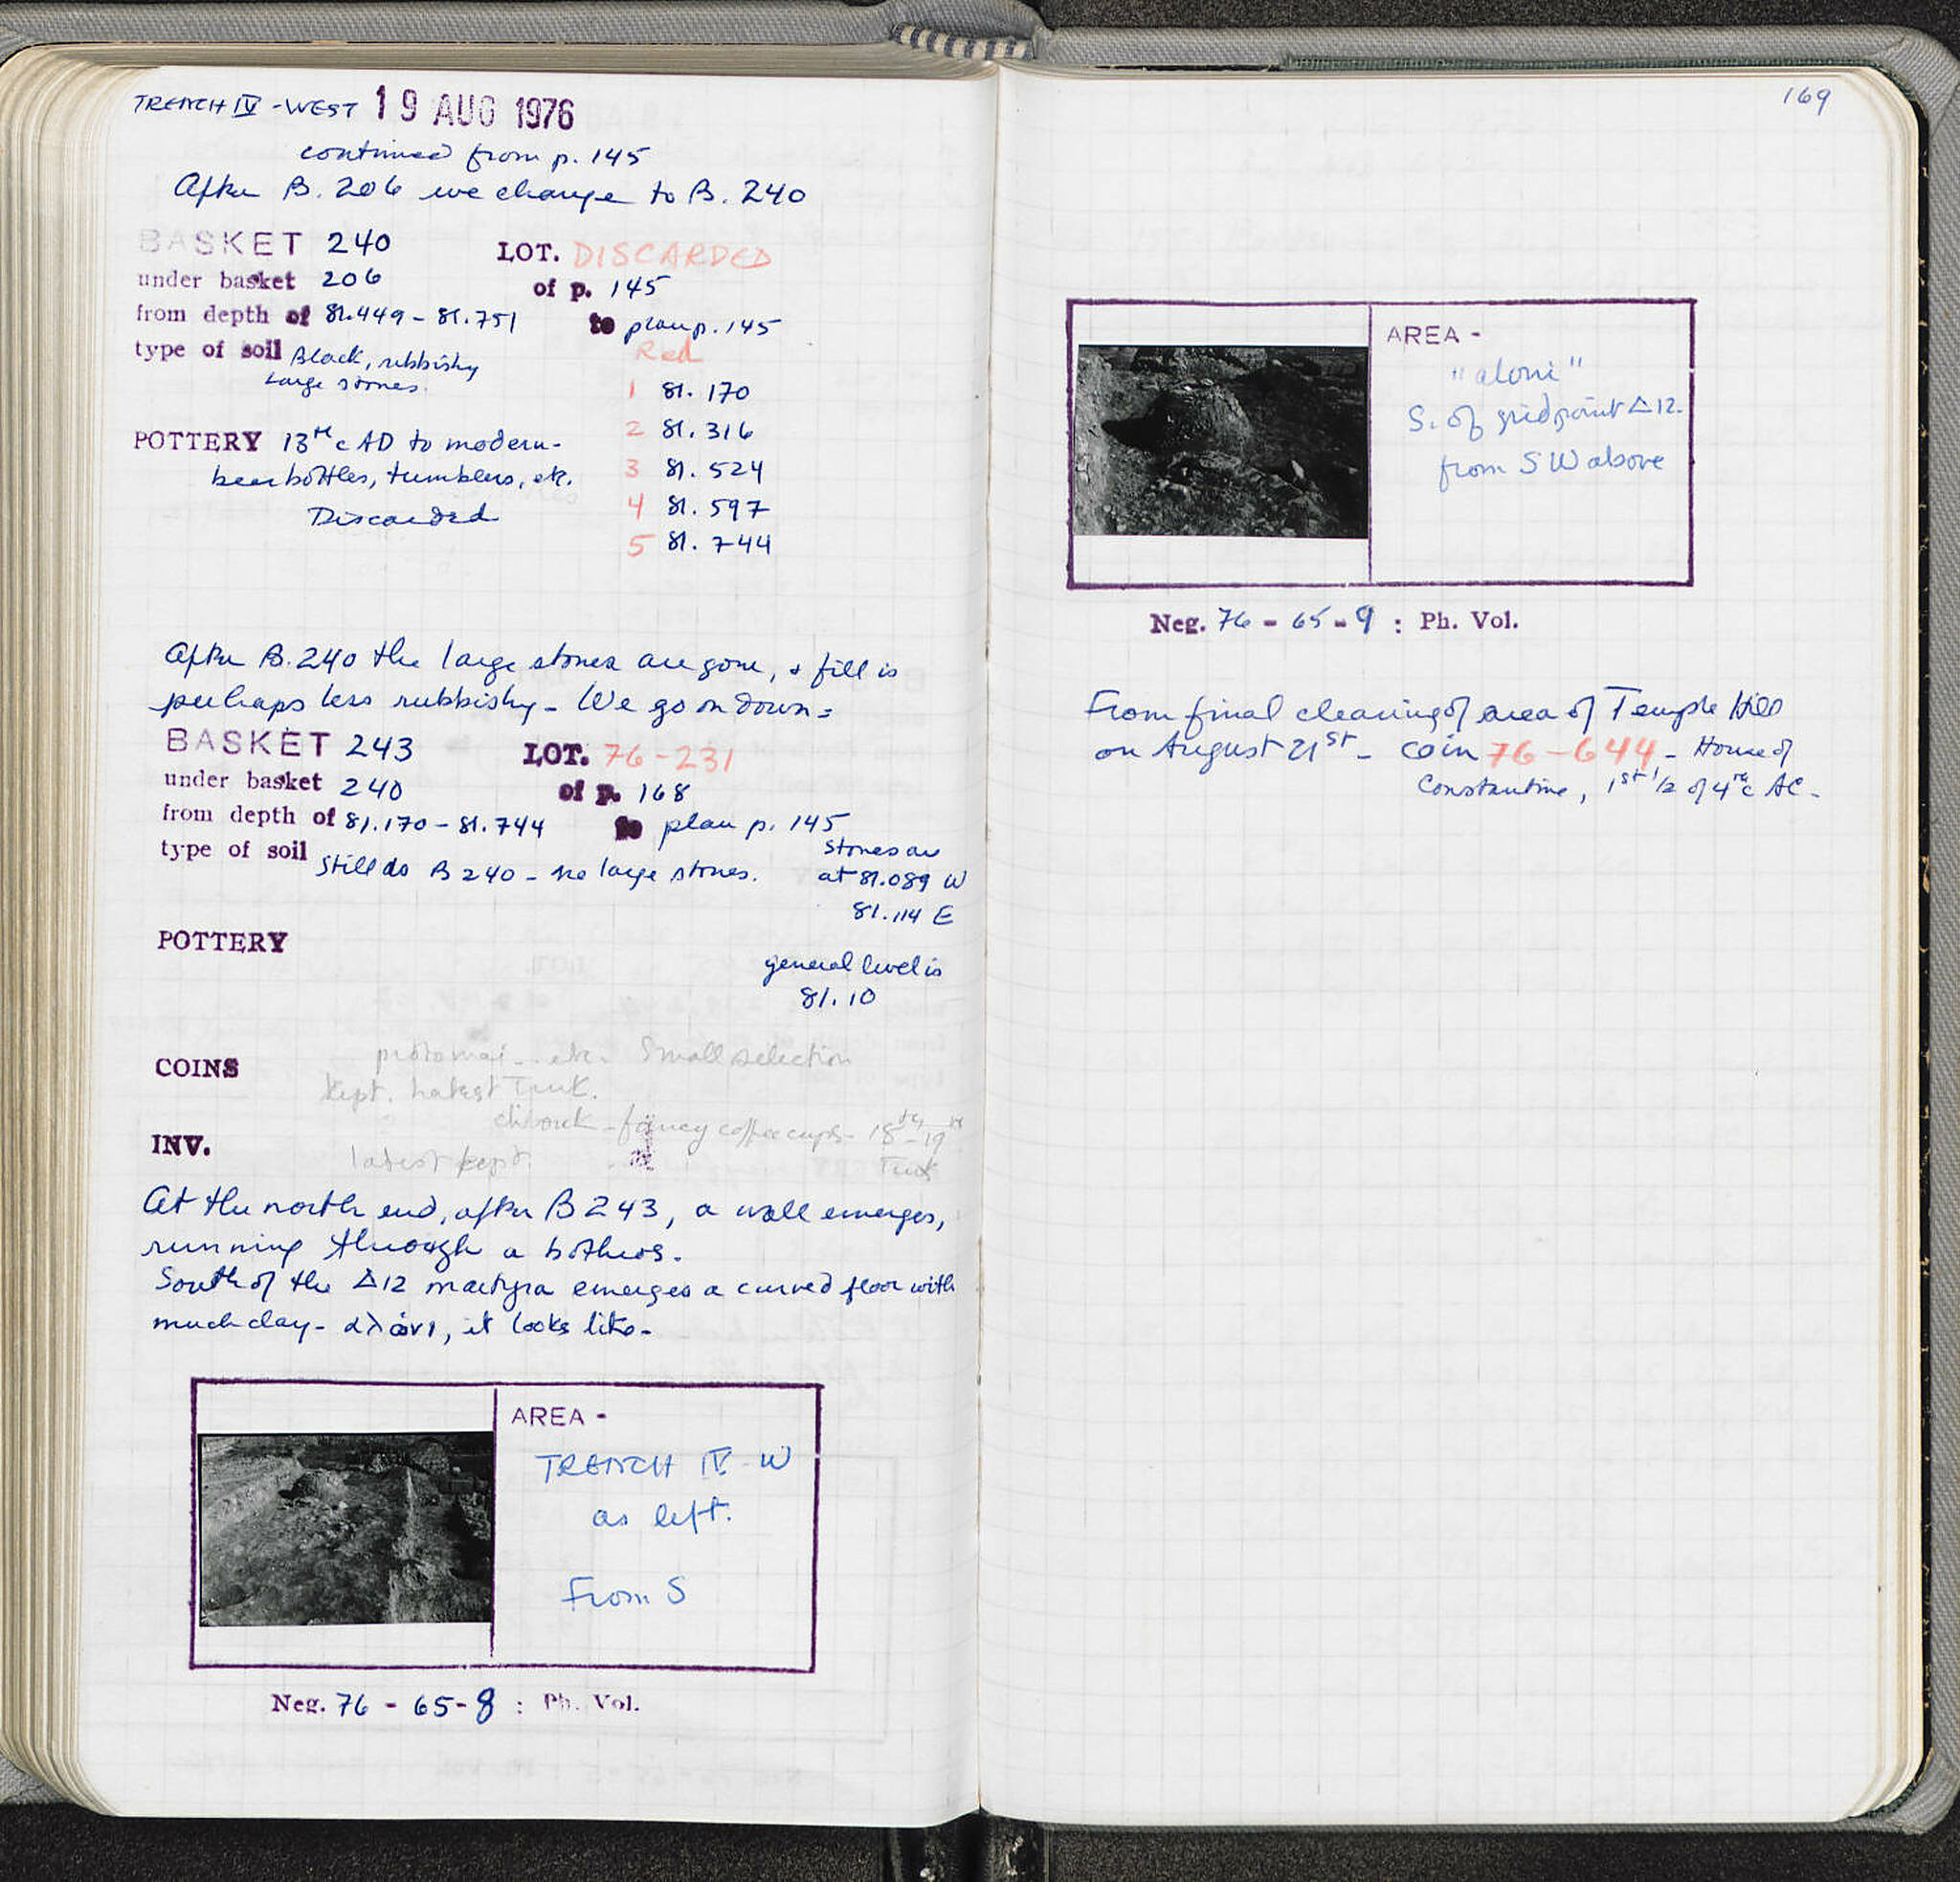 TRENCH IV - WEST 19 AUG 1976
continued from p. 145
After B. 206 we change to B. 240
BASKET 240 LOT. DISCARDED
under basket 206 of p. 145
from depth of 81.449 - 81.751 to plan p. 145
type of soil Black, rubbishy Red
Large stones.
1 81.170
2 81.316
3 81.524
4 81.597
5 81.744
POTTERY 13th c AD to modern-
beer bottles, tumblers, etc.
Discarded
After B. 240 the large stones are gone, & fill is
perhaps less rubbishy - We go on down =
BASKET 243 LOT. 76-231
under basket 240 of p. 168
from depth of 81.170 - 81.744 to plan p. 145
type of soil Still do B 240 - no large stones.
Stones are
at 81.089 W
81.114 E
POTTERY
general level is
81.10
COINS
etc. Small selection
kept. latest Turk.
fancy coffee cups - 18th - 19th
Turk
INV.
latest kept.
At the north end, after B 243, a wall emerges,
running through a bothros.
South of the Δ12 martyra emerges a curved floor with
much clay - αλώνι, it looks like -
AREA -
TRENCH IV - W
as left.
From S
Neg. 76 - 65 - 8 : Ph. Vol.
169
AREA -
"aloni"
S. of gridpoint Δ12.
from SW above
Neg. 76 - 65 - 9 : Ph. Vol.
From final clearing of area of Temple Hill
on August 21st - coin 76-644 - House of
Constantine, 1st 1/2 of 4th c AC -